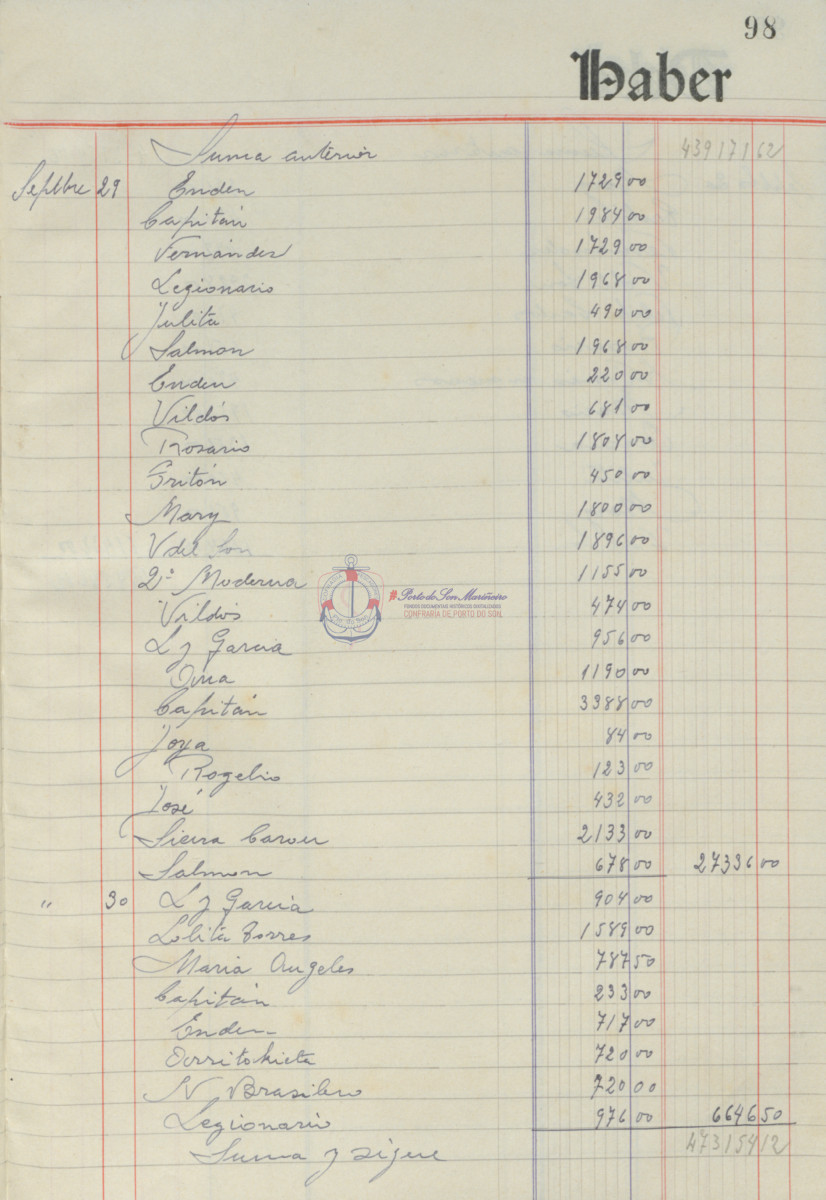 98
Haber
Suma anterior 439171 62
Septbre 29 Enden 1729 00
Capitán 1984 00
Fernández 1729 00
Legionario 1968 00
Julita 490 00
Salmon 1968 00
Enden 220 00
Vildós 681 00
Rosario 1808 00
Gritón 450 00
Mary 1800 00
V del Son 1896 00
2ª Moderna 1155 00
Vildós 474 00
L y Garcia 956 00
1190 00
Capitán 3388 00
Joya 84 00
Rogelio 123 00
José 432 00
Sierra 2133 00
Salmon 678 00 27336 00
" 30 L y Garcia 904 00
Lolita Torres 1589 00
Maria Angeles 787 50
Capitán 233 00
Enden 717 00
720 00
N Brasilero 720 00
Legionario 976 00 6646 50
Suma y sigue 473154 12
#Porto do Son Mariñeiro
FONDOS DOCUMENTAIS HISTÓRICOS DIXITALIZADOS
CONFRARÍA DE PORTO DO SON